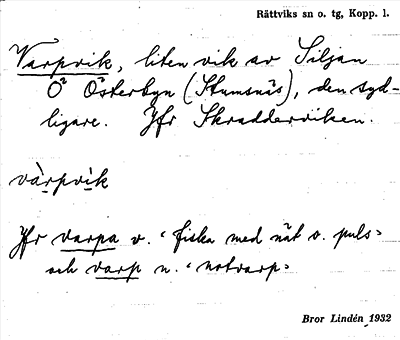 Rättviks sn o. tg, Kopp. l.
Varpvik, liten vik av Siljan
O² Österbyn (Stumsnäs), den syd-
ligare. Jfr Skräddarviken.
vàrpvìk
Jfr varpa v. "fiska med nät o. puls"
och varp n. "notvarp"
Bror Lindén 1932